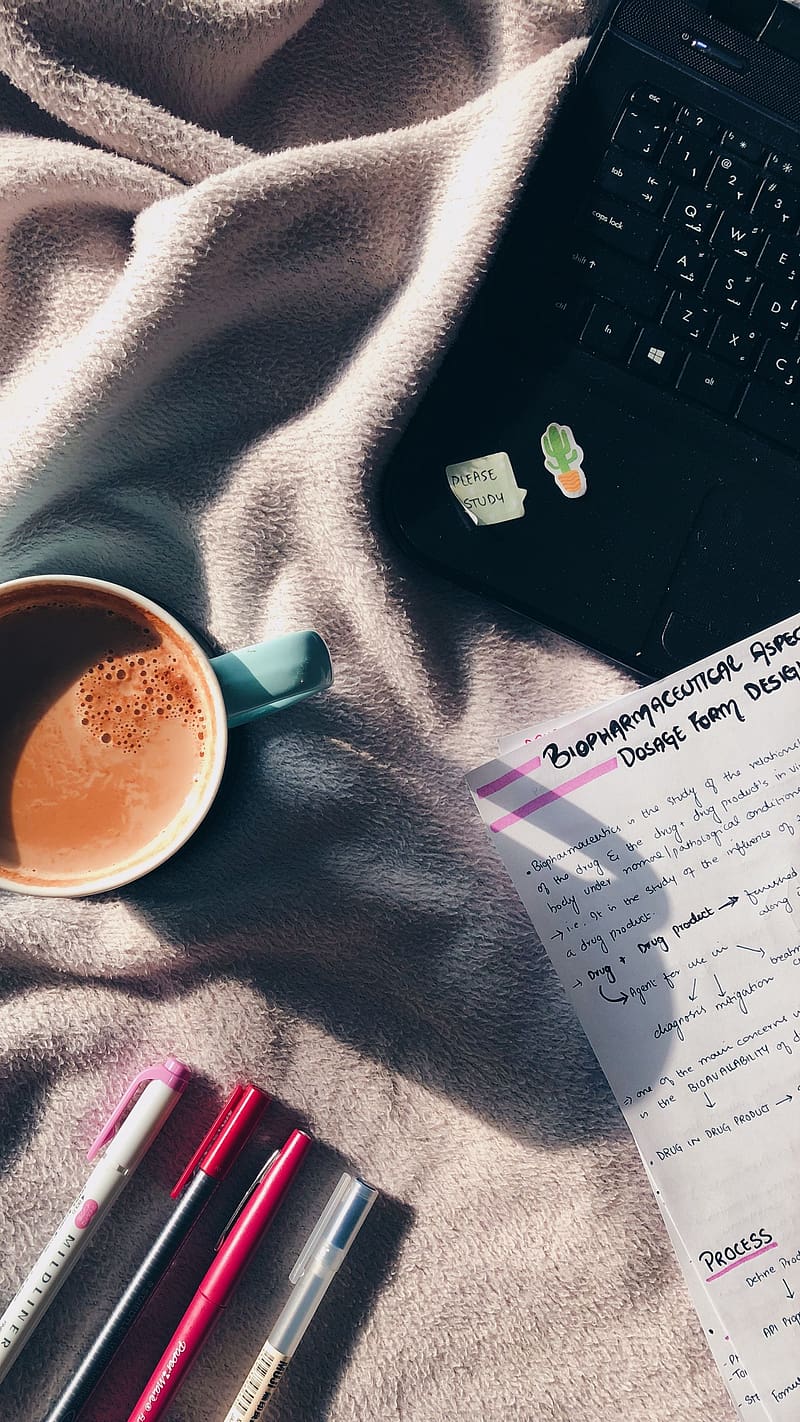 esc
?
tab
caps lock
shift
ctrl
fn
alt
! 1
@ 2 ٢
# 3 ٣
Q ض
W ص
E
A ش
S س
D
Z
X
C
PLEASE
STUDY
BIOPHARMACEUTICAL ASPEC
DOSAGE FORM DESIG
• Biopharmaceutics is the study of the relations
of the drug & the drug + drug product's in vi
body under normal/pathological condition
→ i.e. It is the study of the influence of
a drug product.
→ Drug + Drug product → finished
along
Agent for use in treatm
diagnosis mitigation
⇒ one of the main concerns
is the BIOAVAILABILITY of d
• DRUG IN DRUG PRODUCT →
PROCESS
Define Prod
API Prop
Formul
MILDLINER
Paper Mate
MUJI